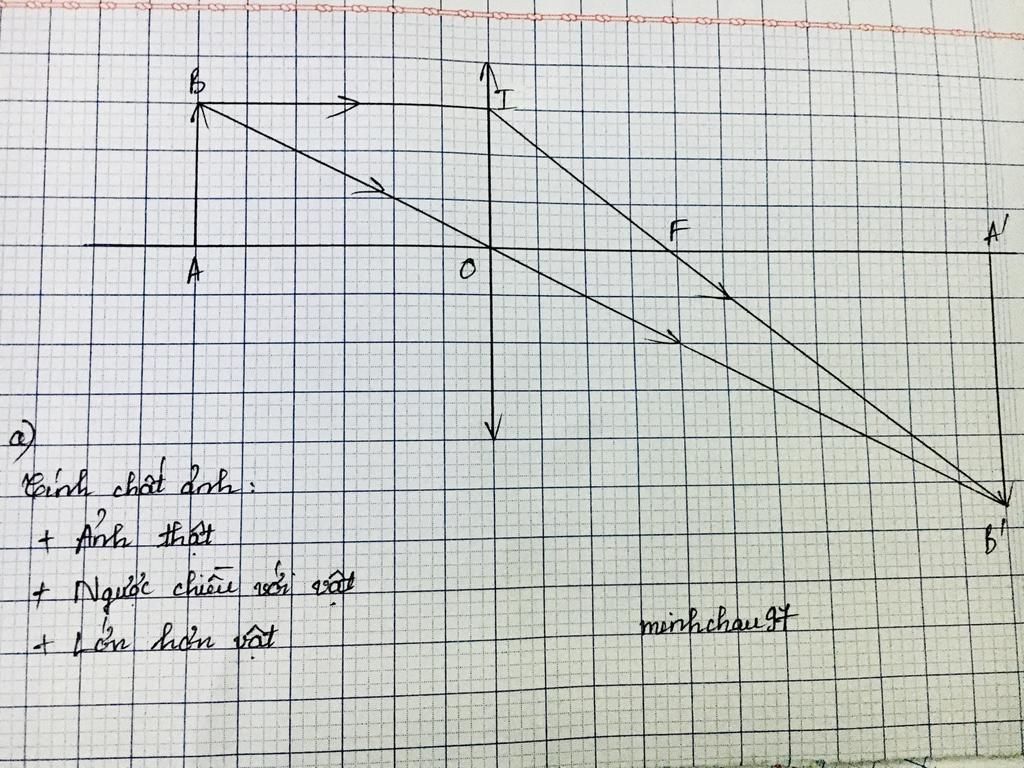 B
I
F
A'
A
O
a)
Tính chất ảnh:
+ Ảnh thật
+ Ngược chiều với vật
B'
minhchau97
+ Lớn hơn vật